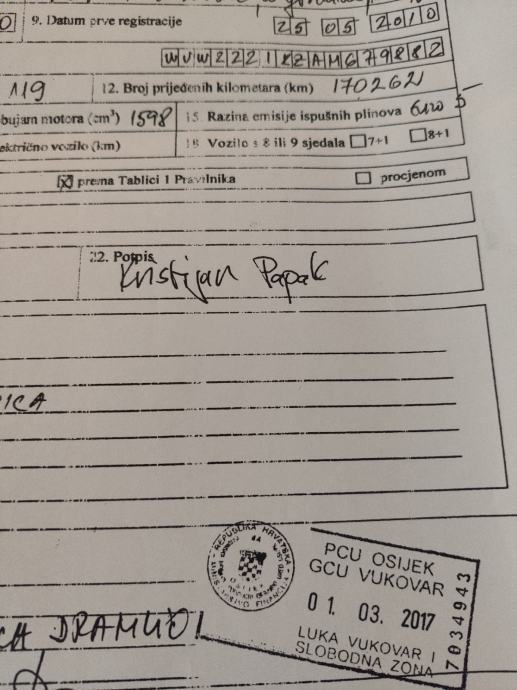 9. Datum prve registracije 25 05 2010
WVWZZZ1KZAM679882
119 12. Broj prijeđenih kilometara (km) 170262
bujam motora (cm³) 1598 15. Razina emisije ispušnih plinova euro 5
električno vozilo (km) 18 Vozilo s 8 ili 9 sjedala 7+1 8+1
prema Tablici 1 Pravilnika procjenom
22. Potpis
Kristijan Papak
REPUBLIKA HRVATSKA
PCU OSIJEK
GCU VUKOVAR
01. 03. 2017
LUKA VUKOVAR I
SLOBODNA ZONA
7034943